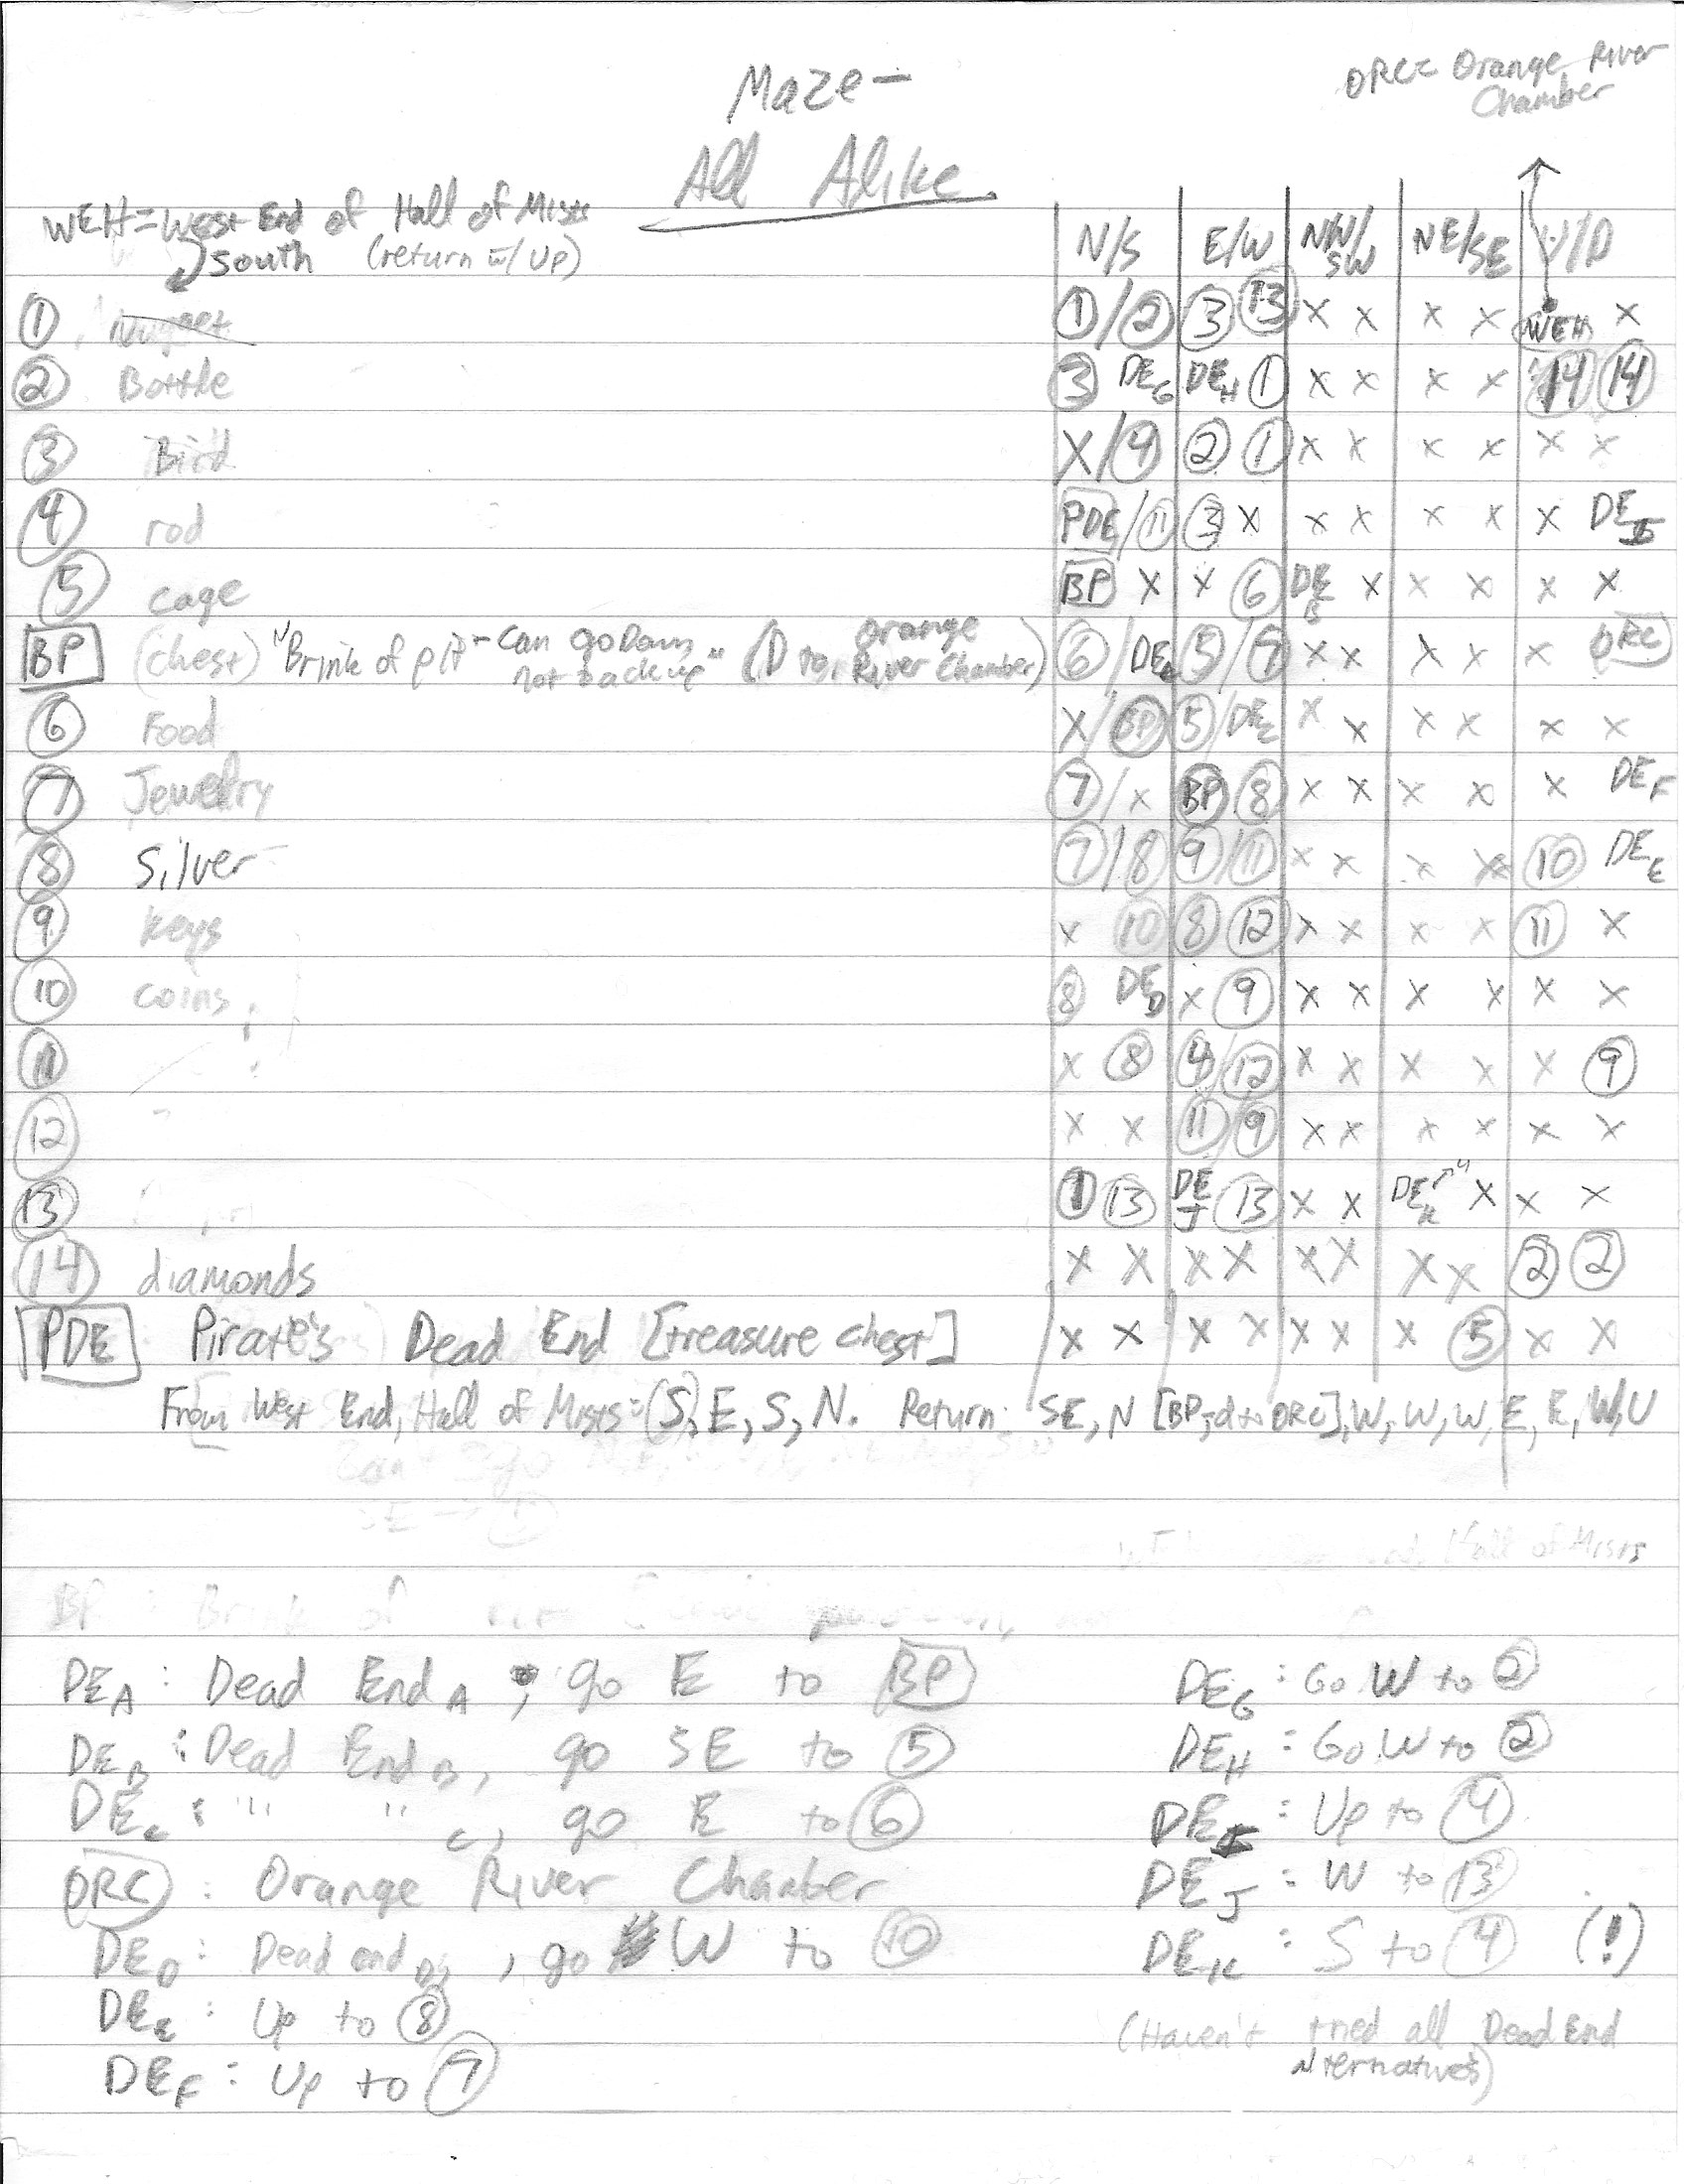 Maze –
All Alike
ORC= Orange River
Chamber
WEH=West End of Hall of Mists
South (return w/ Up)
N/S E/W NW/SW NE/SE U/D
① Nugget ①/② ③ ⑬ X X X X WEH X
② Bottle ③ DE_G DE_H ① X X X X ⑭ ⑭
③ Bird X/④ ② ① X X X X X X
④ rod PDE/⑪ ③ X X X X X X DE_I
⑤ cage BP X X ⑥ DE_B X X X X X
BP (chest) "Brink of pit - Can go Down not back up" (D to Orange River Chamber) ⑥/DE_A ⑤/⑦ X X X X X ORC
⑥ Food X/BP ⑤/DE_C X X X X X X
⑦ Jewelry ⑦/X BP ⑧ X X X X X DE_F
⑧ Silver ⑦/⑧ ⑨/⑪ X X X X ⑩ DE_E
⑨ keys X ⑩ ⑧ ⑫ X X X X ⑪ X
⑩ coins ⑧ DE_D X ⑨ X X X X X X
⑪ X ⑧ ④/⑫ X X X X X ⑨
⑫ X X ⑪ ⑨ X X X X X X
⑬ ① ⑬ DE_J ⑬ X X DE_K X X X
⑭ diamonds X X X X X X X X ② ②
PDE Pirate's Dead End [treasure chest] X X X X X X X ⑤ X X
From West End, Hall of Mists: (S), E, S, N. Return: SE, N [BP; d to ORC], W, W, W, E, E, W, U
Hall of Mists
BP : Brink of
DE_A : Dead End A, go E to BP
DE_B : Dead End B, go SE to ⑤
DE_C : " " C, go E to ⑥
ORC : Orange River Chamber
DE_D : Dead end D, go W to ⑩
DE_E : Up to ⑧
DE_F : Up to ⑦
DE_G : Go W to ②
DE_H : Go W to ②
DE_I : Up to ④
DE_J : W to ⑬
DE_K : S to ④ (!)
(Haven't tried all Dead End
Alternatives)